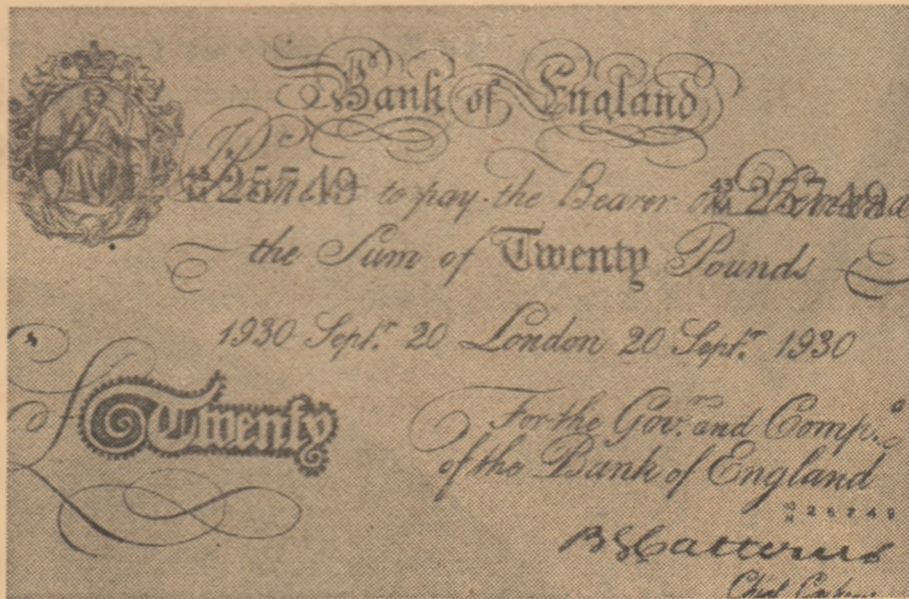 Bank of England
to pay the Bearer
the Sum of Twenty Pounds
1930 Septr. 20 London 20 Septr. 1930
Twenty
For the Govr. and Compa.
of the Bank of England
26749
B G Catterns
Chief